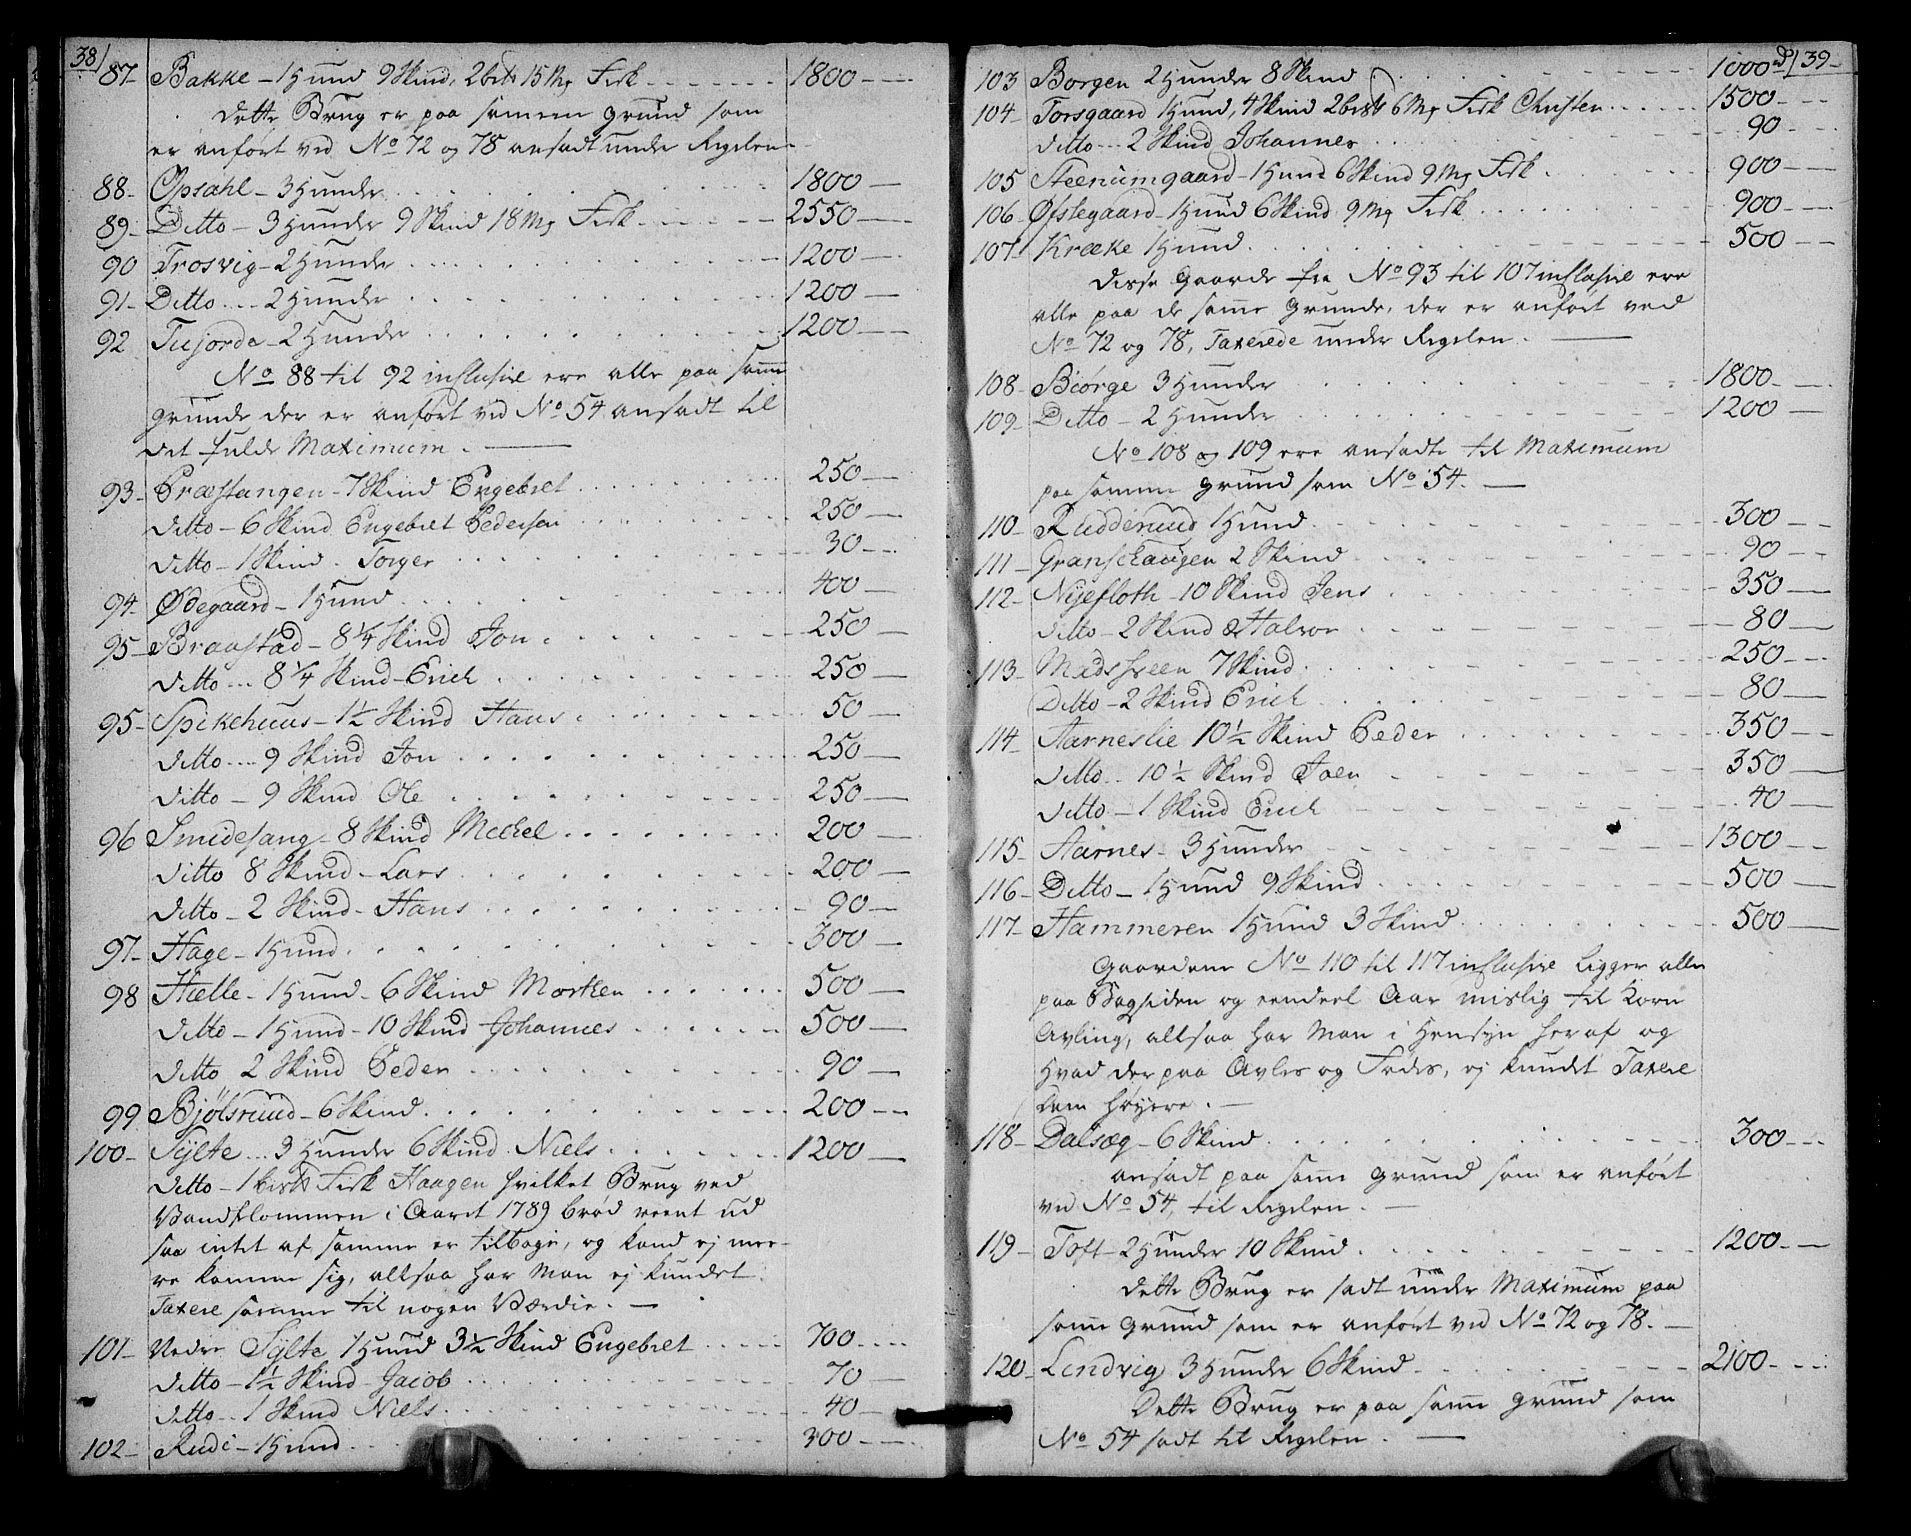 38/
87 Bakke - 1 Hund 9 Skind, 2 bis℔ 15 Mg Fisk 1800
Dette Brug er paa samme grund som
er anført ved No 72 og 78 ansadt under Regelen
88 Opsahl - 3 Hunder 1800
89 Ditto - 3 Hunder 9 Skind 18 Mg Fisk 2550
90 Trosvig - 2 Hunder 1200
91 Ditto - 2 Hunder 1200
92 Tiujorde - 2 Hunder 1200
No 88 til 92 inclusive ere alle paa samme
grunde der er anført ved No 54 ansadt til
det fulde Maximum.
93 Præstangen - 7 Skind Engebret 250
ditto - 6 Skind Engebret Pedersen 250
ditto - 1 Skind. Torger 30
94 Ødegaard - 1 Hund 400
95 Braastad - 8 1/4 Skind Jon 250
ditto - 8 1/4 Skind - Erich 250
95 Spikehuus - 1 1/2 Skind Hans 50
ditto - 9 Skind Jon 250
ditto - 9 Skind Ole 250
96 Smidesang - 8 Skind Mechel 200
ditto 8 Skind - Lars 200
ditto - 2 Skind - Hans 90
97 Hage - 1 Hund 300
98 Hælle - 1 Hund - 6 Skind Morthen 500
ditto - 1 Hund - 10 Skind Johannes 500
ditto 2 Skind Peder 90
99 Bjølsrund - 6 Skind 200
100 Sylte - 3 Hunder 6 Skind Niels 1200
ditto - 1 bis℔ Fisk Haagen hvilket Brug ved
Vandflommen i Aaret 1789 brød reent ud
saa intet af samme er tilbage, og kand ej mee-
re komme sig, altsaa har Man ej kundet
Taxere samme til nogen Værdie.
101 Nedre Sylte 1 Hund 3 1/2 Skind Engebret 700
ditto - 1 1/2 Skind Jacob 70
ditto - 1 Skind Niels 40
102 Rudi - 1 Hund 300
/39
103 Borgen 2 Hunder 8 Skind 1000 d
104 Torsgaard 1 Hund, 4 Skind 2 bis℔ 6 Mg Fisk Christen 1500
ditto - 2 Skind Johannes 90
105 Steenumgaard - 1 Hund 6 Skind 9 Mg Fisk 900
106 Øfstegaard - 1 Hund 6 Skind 9 Mg Fisk 900
107 Kræke 1 Hund 500
Disse Gaarde fra No 93 til 107 inclusive ere
alle paa de samme grunde, der er anført ved
No 72 og 78, Taxerede under Regelen.
108 Biørge 3 Hunder 1800
109 Ditto - 2 Hunder 1200
No 108 og 109 ere ansadte til Maximum
paa samme grund som No 54.
110 Rudderuud 1 Hund 300
111 Granschaugen 2 Skind 90
112 Nyefloth - 10 Skind Jens 350
ditto - 2 Skind Halvor 80
113 Madshveen 7 Skind 250
Ditto - 2 Skind Erich 80
114 Aarneslie 10 1/2 Skind Peder 350
ditto - 10 1/2 Skind Joen 350
ditto - 1 Skind Erich 40
115 Aarnes - 3 Hunder 1300
116 Ditto - 1 Hund 9 Skind 500
117 Hammeren 1 Hund 3 Skind 500
Gaardene No 110 til 117 inclusive ligger alle
paa Bagsiden og eendeel Aar mislig til Korn
Avling, altsaa har Man i Hensyn heraf og
Hvad der paa Avles og Fødes, ej kundet Taxere
dem høyere.
118 Dalsæg - 6 Skind 300
ansadt paa samme grund som er anført
ved No 54, til Regelen.
119 Toft - 2 Hunder 10 Skind 1200
Dette Brug er sadt under Maximum paa
samme grund som er anført ved No 72 og 78.
120 Lendvig 3 Hunder 6 Skind 2100
Dette Brug er paa samme grund som
No 54 sadt til Regelen.